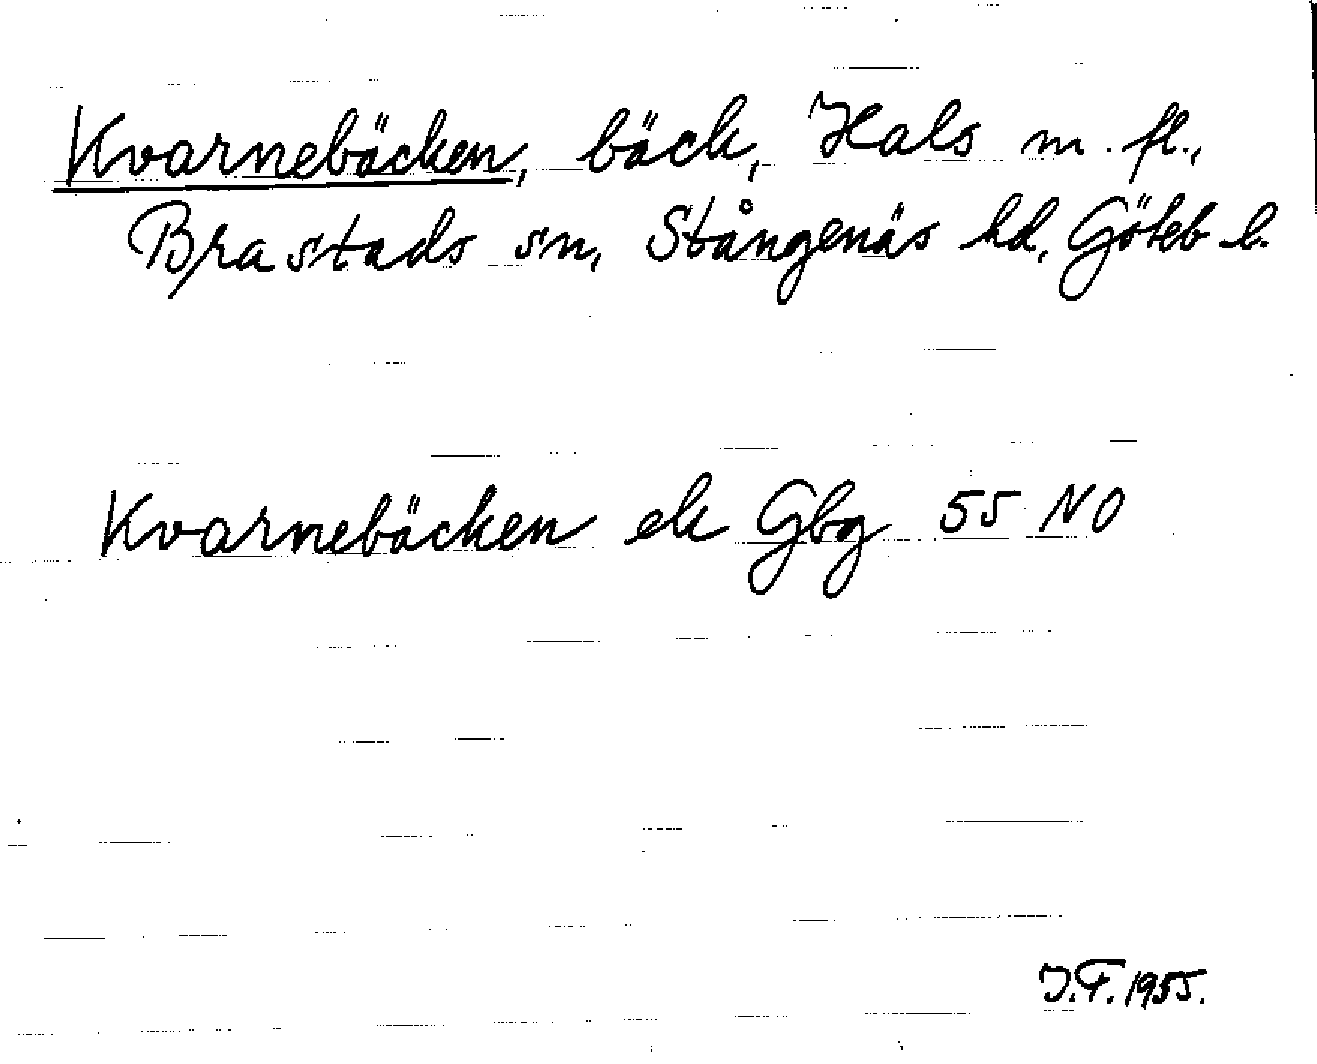 Kvarnebäcken, bäck, Hals m. fl.,
Brastads sn, Stångenäs hd, Göteb l.
Kvarnebäcken ek Gbg 55 NO
J.F. 1955.